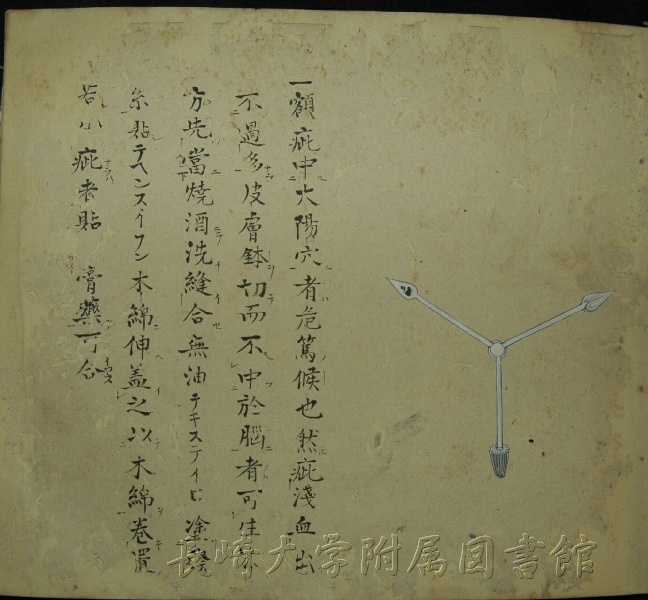 一額疵中太陽穴者危篤候也然疵淺血出
不過多皮膚鉢切而不中於腦者可生
方先當燒酒洗縫合無油テキステイヒ塗
糸點テヘンスイフン木綿伸蓋之以木綿卷置
若小疵者貼 膏藥可合
長崎大学附属図書館